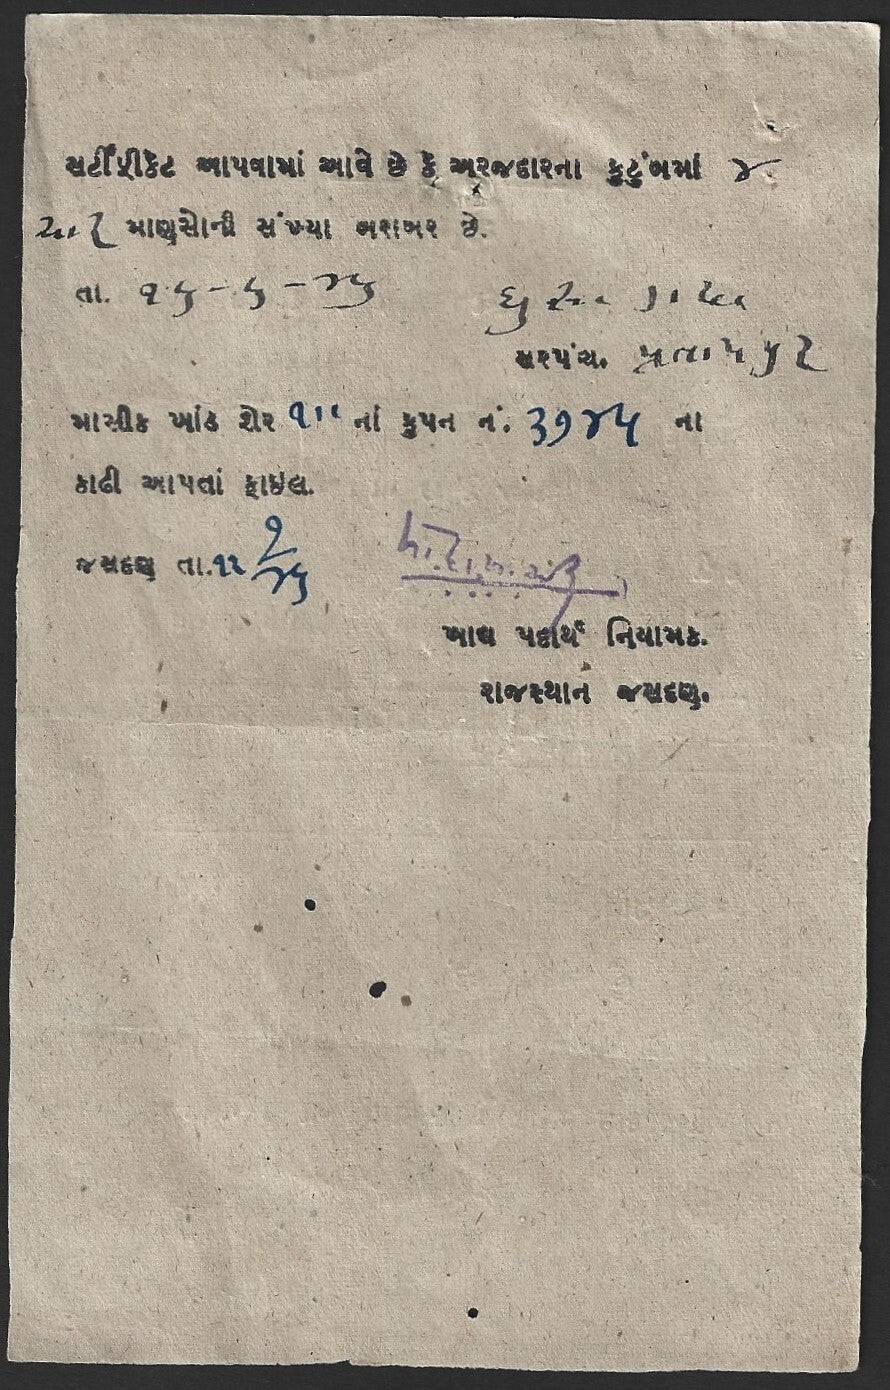 સર્ટીફીકેટ આપવામાં આવે છે કે અરજદારના કુટુંબમાં ૪
ચાર માણસોની સંખ્યા બરાબર છે.
તા. ૧૫-૬-૪૫
સરપંચ. પ્રતાપપુર
માસીક ખાંડ શેર ૧૫ નાં કુપન નં. ૩૧૪૫ ના
કાઢી આપતાં ફાઇલ.
જસદણ તા.૧૨ ૭/૪૫
ખાદ્ય પદાર્થ નિયામક.
રાજસ્થાન જસદણ.